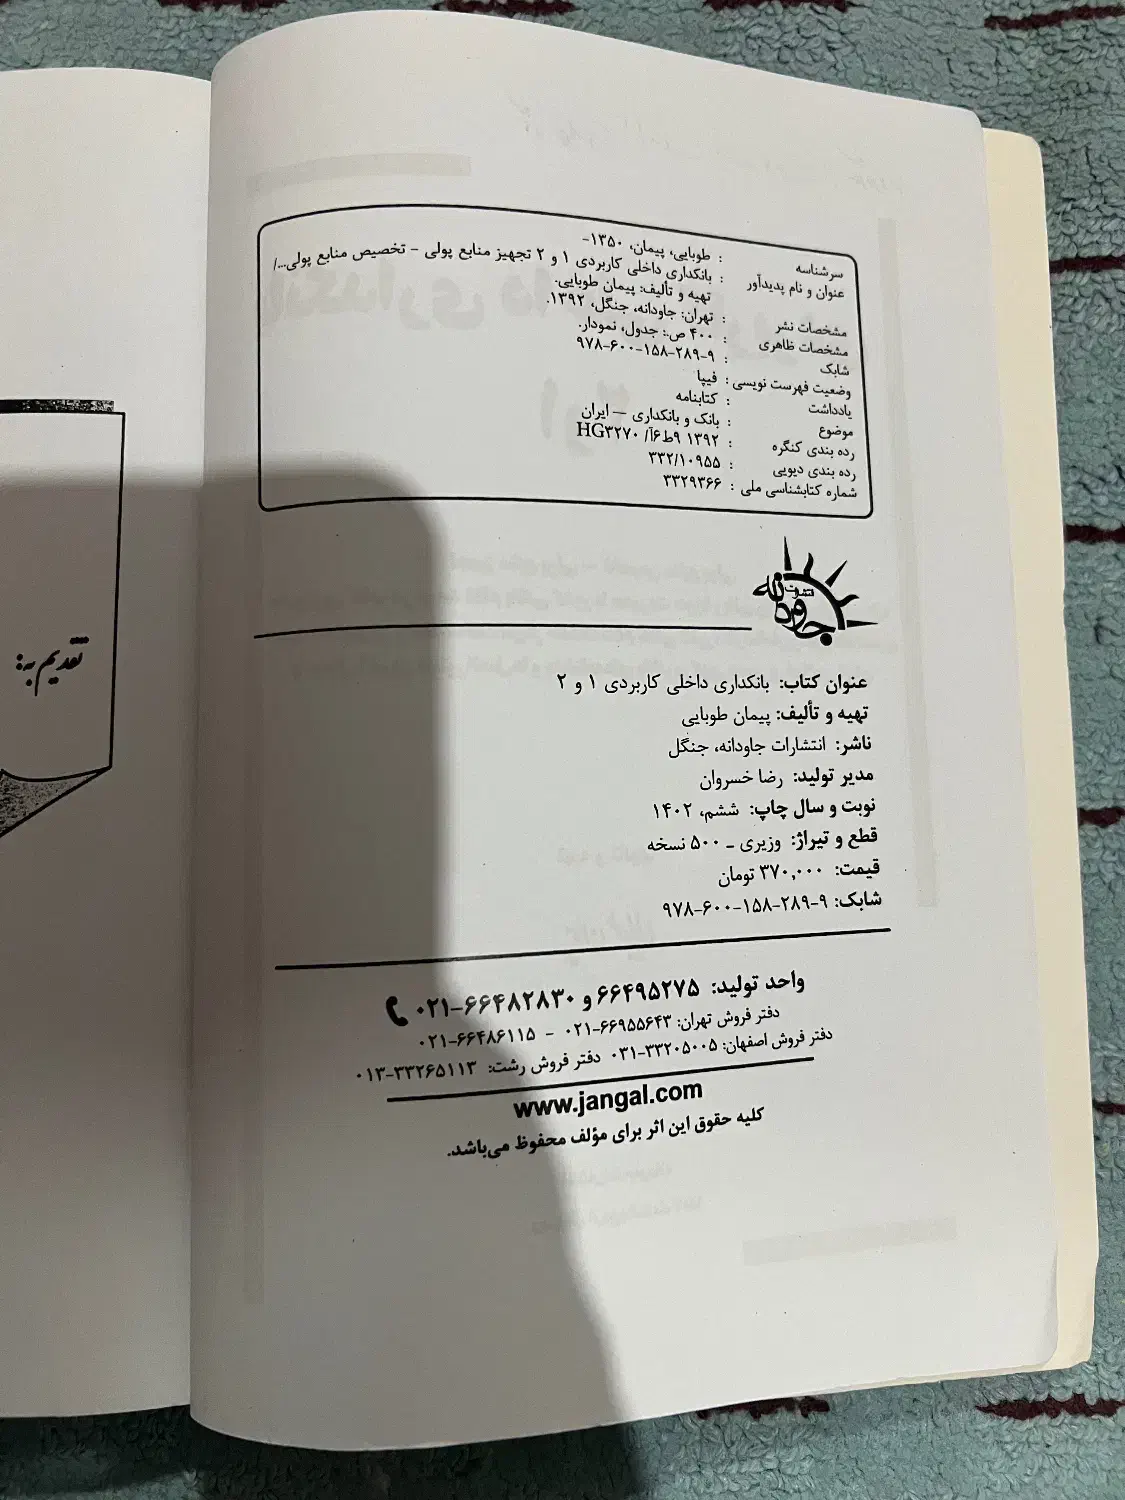 سرشناسه : طوبایی، پیمان، ۱۳۵۰-
عنوان و نام پدیدآور : بانکداری داخلی کاربردی ۱ و ۲ تجهیز منابع پولی - تخصیص منابع پولی.../
تهیه و تألیف: پیمان طوبایی.
مشخصات نشر : تهران: جاودانه، جنگل، ۱۳۹۲.
مشخصات ظاهری : ۴۰۰ ص.: جدول، نمودار.
شابک : ۹۷۸-۶۰۰-۱۵۸-۲۸۹-۹
وضعیت فهرست نویسی : فیپا
یادداشت : کتابنامه
موضوع : بانک و بانکداری — ایران
رده بندی کنگره : ۱۳۹۲ ۹ط۶آ/ HG۳۲۷۰
رده بندی دیویی : ۳۳۲/۱۰۹۵۵
شماره کتابشناسی ملی : ۳۳۲۹۳۶۶
نشرات
جاودانه
عنوان کتاب: بانکداری داخلی کاربردی ۱ و ۲
تهیه و تألیف: پیمان طوبایی
ناشر: انتشارات جاودانه، جنگل
مدیر تولید: رضا خسروان
نوبت و سال چاپ: ششم، ۱۴۰۲
قطع و تیراژ: وزیری ـ ۵۰۰ نسخه
قیمت: ۳۷۰,۰۰۰ تومان
شابک: ۹-۲۸۹-۱۵۸-۶۰۰-۹۷۸
واحد تولید: ۶۶۴۹۵۲۷۵ و ۶۶۴۸۲۸۳۰-۰۲۱
دفتر فروش تهران: ۶۶۹۵۵۶۴۳-۰۲۱ - ۶۶۴۸۶۱۱۵-۰۲۱
دفتر فروش اصفهان: ۳۳۲۰۵۰۰۵-۰۳۱ دفتر فروش رشت: ۳۳۲۶۵۱۱۳-۰۱۳
www.jangal.com
کلیه حقوق این اثر برای مؤلف محفوظ می‌باشد.
تقدیم به: